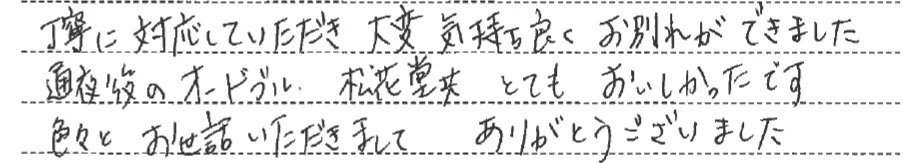 丁寧に対応していただき 大変 気持ち良く お別れが できました
通夜後の オードブル、松花堂共 とても おいしかったです
色々と お世話いただきまして ありがとうございました